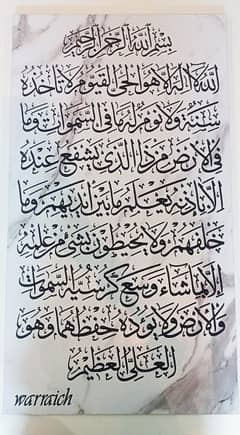 بِسْمِ اللَّهِ الرَّحْمَٰنِ الرَّحِيمِ
اللَّهُ لَا إِلَٰهَ إِلَّا هُوَ الْحَيُّ الْقَيُّومُ لَا تَأْخُذُهُ
سِنَةٌ وَلَا نَوْمٌ لَهُ مَا فِي السَّمَوَاتِ وَمَا
فِي الْأَرْضِ مَنْ ذَا الَّذِي يَشْفَعُ عِنْدَهُ
إِلَّا بِإِذْنِهِ يَعْلَمُ مَا بَيْنَ أَيْدِيهِمْ وَمَا
خَلْفَهُمْ وَلَا يُحِيطُونَ بِشَيْءٍ مِنْ عِلْمِهِ
إِلَّا بِمَا شَاءَ وَسِعَ كُرْسِيُّهُ السَّمَوَاتِ
وَالْأَرْضَ وَلَا يَئُودُهُ حِفْظُهُمَا وَهُوَ
الْعَلِيُّ الْعَظِيمُ
warraich